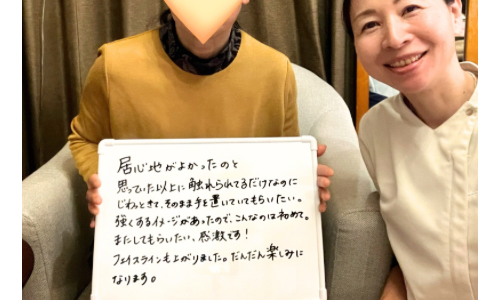 居心地がよかったのと
思っていた以上に触れられてるだけなのに
じわっときて、そのまま手を置いていてもらいたい。
強くするイメージがあったので、こんなのは初めて。
またしてもらいたい、感激です!
フェイスラインも上がりました。だんだん楽しみに
なります。